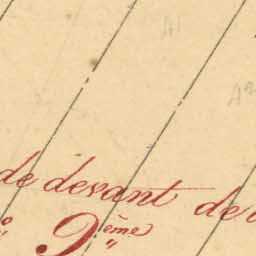 A1
de devant de
9ème